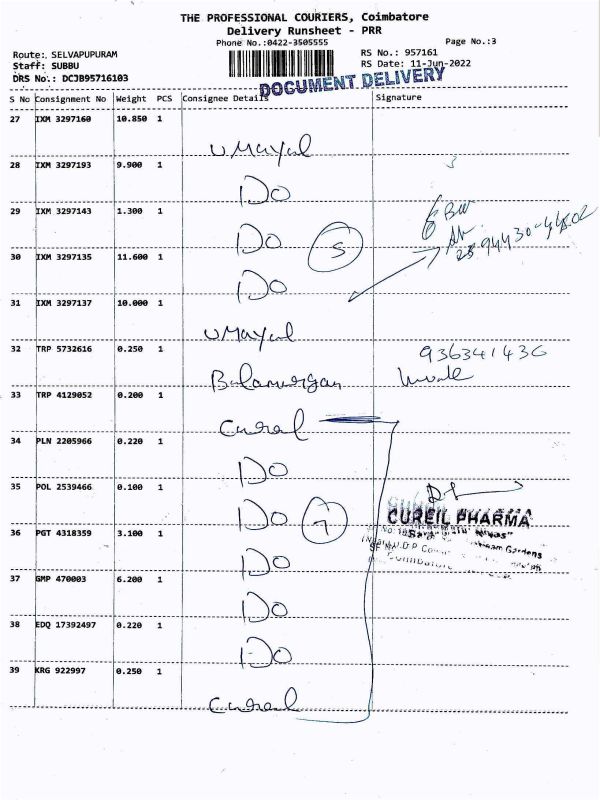 THE PROFESSIONAL COURIERS, Coimbatore
Delivery Runsheet - PRR
Phone No.:0422-3505555
Page No.:3
Route: SELVAPUPURAM
RS No.: 957161
Staff: SUBBU
RS Date: 11-Jun-2022
DRS No.: DCJB95716103
DOCUMENT DELIVERY
S No Consignment No Weight PCS Consignee Details Signature
27 IXM 3297160 10.850 1
UMayal
28 IXM 3297193 9.900 1
Do
29 IXM 3297143 1.300 1
Do 5
30 IXM 3297135 11.600 1
Do
31 IXM 3297137 10.000 1
UMayal
32 TRP 5732616 0.250 1
Balamurgan 936341436
33 TRP 4129052 0.200 1
Cureal
34 PLN 2205966 0.220 1
Do
35 POL 2539466 0.100 1
Do 7
CUREIL PHARMA
36 PGT 4318359 3.100 1
Do
Gardens
37 GMP 470003 6.200 1
Do
38 EDQ 17392497 0.220 1
Do
39 KRG 922997 0.250 1
Cureal